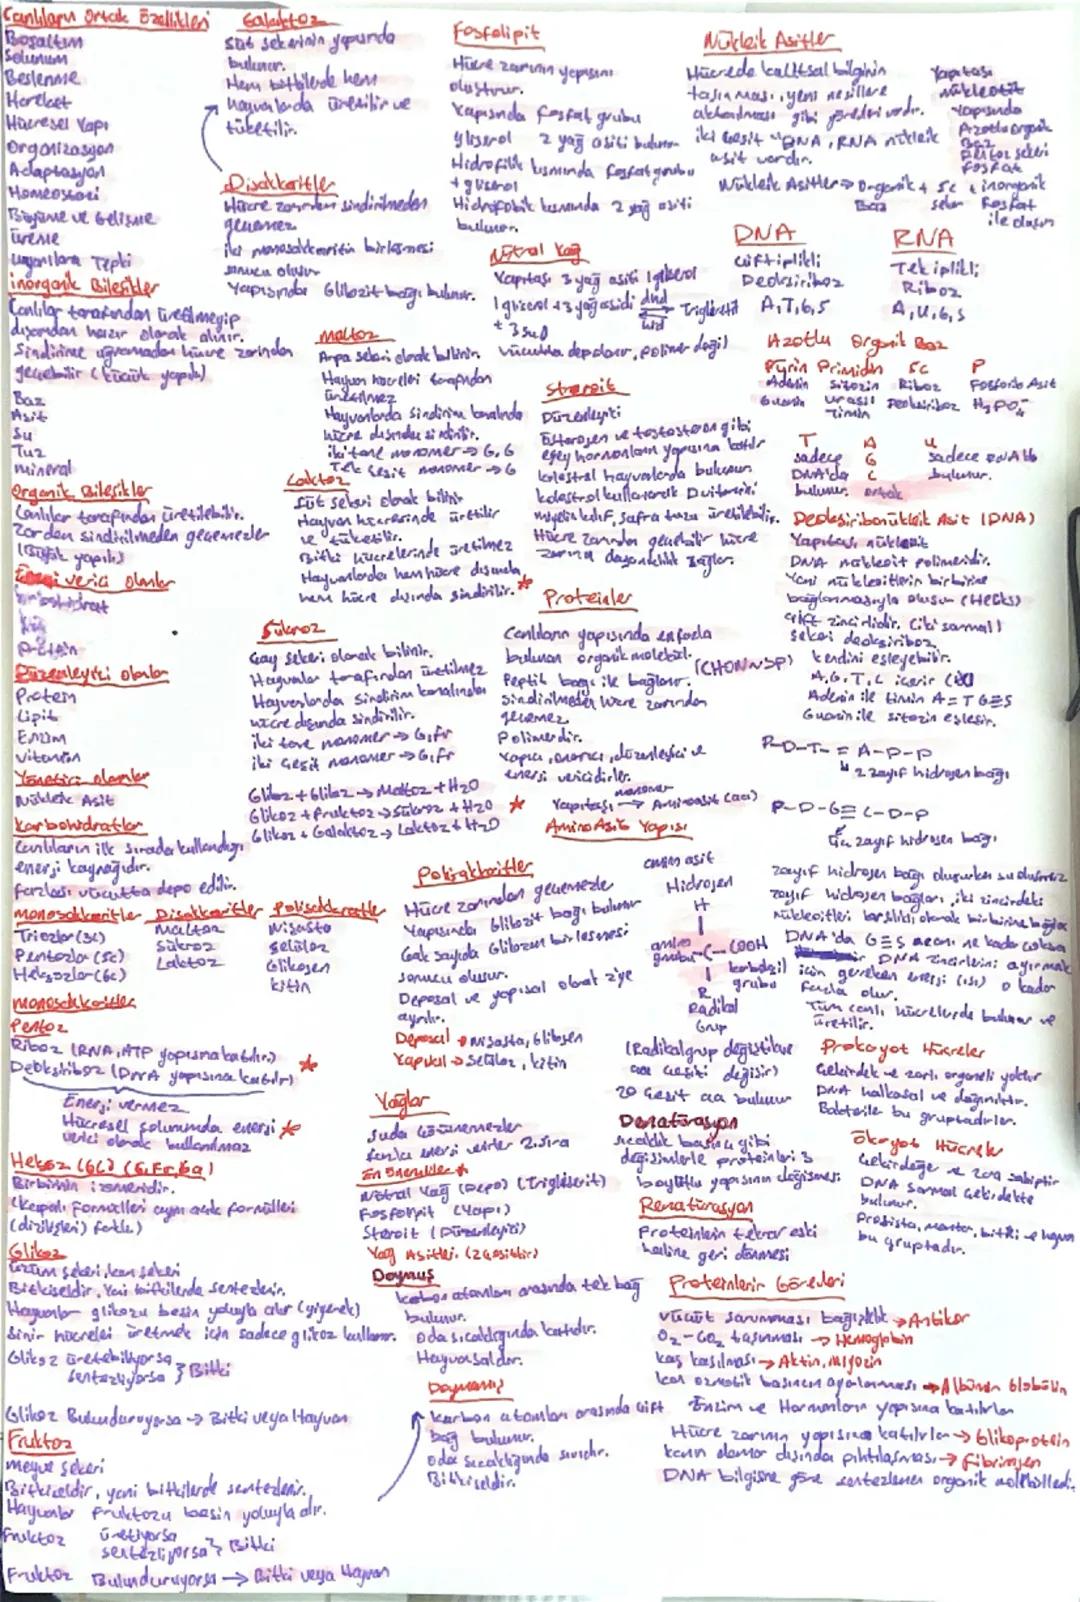 Canlıların Ortak Özellikleri
Boşaltım
Solunum
Beslenme
Hareket
Hücresel Yapı
Organizasyon
Adaptasyon
Homeostazi
Büyüme ve Gelişme
Üreme
Uyarılara Tepki
İnorganik Bileşikler
Canlılar tarafından üretilmeyip
dışarıdan hazır olarak alınır.
Sindirime uğramadan hücre zarından
geçebilir (küçük yapılı)
Baz
Asit
Su
Tuz
mineral
Organik Bileşikler
Canlılar tarafından üretilebilir.
Zardan sindirilmeden geçemezler
(Büyük yapılı)
Enerji verici olanlar
Karbohidrat
Yağ
Protein
Düzenleyici olanlar
Protein
Lipit
Enzim
vitamin
Yönetici olanlar
Nükleik Asit
Karbohidratlar
Canlıların ilk sırada kullandığı
enerji kaynağıdır.
Fazlası vücutta depo edilir.
monosakkaritler Disakkaritler Polisakkaritler
Triozlar (3c) Maltoz Nişasta
Pentozlar (5c) Sükroz Selüloz
Heksozlar (6c) Laktoz Glikojen
kitin
monosakkaritler
Pentoz
Riboz (RNA, ATP yapısına katılır)
Deoksiriboz (DNA yapısına katılır)
Enerji vermez
Hücresel solunumda enerji
verici olarak kullanılmaz
Heksoz (6C) (G, Fr, Ga)
Birbirinin izomeridir.
(kapalı formülleri aynı açık formülleri
(dizilişleri) farklı)
Glikoz
üzüm şekeri, kan şekeri
Bitkiseldir, Yani bitkilerde sentezlenir.
Hayvanlar glikozu besin yoluyla alır (yiyerek)
Sinir hücreleri üretmek için sadece glikoz kullanır.
Glikoz üretebiliyorsa
sentezliyorsa } Bitki
Glikoz Bulunduruyorsa → Bitki veya Hayvan
Fruktoz
meyve şekeri
Bitkiseldir, yani bitkilerde sentezlenir.
Hayvanlar Fruktozu besin yoluyla alır.
Fruktoz üretiyorsa
sentezliyorsa } Bitki
Fruktoz Bulunduruyorsa → Bitki veya Hayvan
Galaktoz
Süt şekerinin yapısında
bulunur.
Hem bitkilerde hem
hayvanlarda üretilir ve
tüketilir.
Disakkaritler
Hücre zarından sindirilmeden
geçemez
iki monosakkaritin birleşmesi
sonucu oluşur
Yapısında Glikozit bağı bulunur.
Maltoz
Arpa şekeri olarak bilinir.
Hayvan hücreleri tarafından
üretilmez
Hayvanlarda sindirim kanalında
hücre dışında sindirilir.
iki tane monomer → G, G
Tek çeşit monomer → G
Laktoz
Süt şekeri olarak bilinir
Hayvan hücresinde üretilir
ve tüketilir.
Bitki hücrelerinde üretilmez
Hayvanlarda hem hücre dışında
hem hücre dışında sindirilir.
Sükroz
Çay şekeri olarak bilinir.
Hayvanlar tarafından üretilmez
Hayvanlarda sindirim kanalından
hücre dışında sindirilir.
iki tane monomer → G, Fr
iki çeşit monomer → G, Fr
Glikoz + Glikoz → Maltoz + H2O
Glikoz + Fruktoz → Sükroz + H2O
Glikoz + Galaktoz → Laktoz + H2O
Polisakkaritler
Hücre zarından geçemezler
Yapısında Glikozit bağı bulunur
Çok sayıda Glikozun birleşmesi
sonucu oluşur.
Deposal ve yapısal olarak 2'ye
ayrılır.
Deposal → Nişasta, Glikojen
Yapısal → Selüloz, kitin
Yağlar
Suda çözünemezler
fazla enerji verirler 2.sıra
En Önemliler
Nötral Yağ (Depo) (Trigliserit)
Fosfolipit (Yapı)
Steroit (Düzenleyici)
Yağ Asitleri (2 çeşittir)
Doymuş
karbon atomları arasında tek bağ
bulunur.
Oda sıcaklığında katıdır.
Hayvansaldır.
Doymamış
Karbon atomları arasında çift
bağ bulunur.
Oda sıcaklığında sıvıdır.
Bitkiseldir.
Fosfolipit
Hücre zarının yapısını
oluşturur.
Yapısında Fosfat grubu
gliserol 2 yağ asiti bulunur
Hidrofilik kısmında fosfat grubu
+ gliserol
Hidrofobik kısmında 2 yağ asiti
bulunur.
Nötral Yağ
Yapıtaşı 3 yağ asiti 1 gliserol
1 gliserol + 3 yağ asidi dhd Trigliserit
+ 3 su hid
Vücutta depolanır, polimer değil
Steroit
Düzenleyici
Östrojen ve testosteron gibi
eşey hormonların yapısına katılır
kolestrol hayvanlarda bulunur.
kolestrol kullanarak D vitamini
miyelin kılıf, safra tuzu üretilebilir.
Hücre zarından geçebilir hücre
zarına dayanıklılık sağlar.
Proteinler
Canlıların yapısında en fazla
bulunan organik molekül. (CHON N SP)
Peptit bağı ile bağlanır.
Sindirilmeden hücre zarından
geçemez
Polimerdir.
Yapıcı, onarıcı, düzenleyici ve
enerji vericidirler.
monomer
Yapıtaşı → Aminoasit (aa)
Amino Asit Yapısı
Hidrojen
H
amino
grubu - C - COOH
karboksil
grubu
R
Radikal
Grup
(Radikal grup değiştikçe
aa çeşidi değişir)
20 çeşit aa bulunur
Denatürasyon
sıcaklık basınç gibi
değişimlerle proteinleri 3
boyutlu yapısının değişmesi
Renatürasyon
Proteinlerin tekrar eski
haline geri dönmesi
Proteinlerin Görevleri
Vücut savunması bağışıklık → Antikor
O2 - CO2 taşınması → Hemoglobin
kas kasılması → Aktin, Miyozin
kan ozmotik basıncın ayarlanması → Albümin Globülin
Enzim ve Hormonların yapısına katılırlar
Hücre zarının yapısına katılırlar → Glikoprotein
kanın damar dışında pıhtılaşması → Fibrinojen
DNA bilgisine göre sentezlenen organik moleküllerdi.
Nükleik Asitler
Hücrede kalıtsal bilginin
taşınması, yeni nesillere
aktarılması gibi görevleri vardır.
iki çeşit "DNA, RNA nükleik
asit vardır.
Yapıtaşı
nükleotit
Yapısında
Azotlu organik
Baz
Pentoz şekeri
Fosfat
Nükleik Asitler → Organik + 5c + inorganik
Baz şeker Fosfat
ile oluşur
DNA RNA
Çift iplikli Tek iplikli
Deoksiriboz Riboz
A, T, G, S A, U, G, S
Azotlu Organik Baz
Pürin Primidin 5C P
Adenin Sitozin Riboz Fosforik Asit
Guanin Urasil Deoksiriboz H3PO4
Timin
T A U
sadece G sadece RNA'da
DNA'da C bulunur.
bulunur. ortak
Deoksiribonükleik Asit (DNA)
Yapıtaşı nükleotit
DNA nükleotit polimeridir.
Yani nükleotitlerin birbirine
bağlanmasıyla oluşur (Heliks)
Çift zincirlidir. (iki sarmal)
şekeri deoksiriboz
kendini eşleyebilir.
A, G, T, C içerir
Adenin ile timin A = T G ≡ S
Guanin ile sitozin eşleşir.
P-D-T = A-D-P
2 zayıf hidrojen bağı
P-D-G ≡ C-D-P
üç zayıf hidrojen bağı
zayıf hidrojen bağı oluşurken su oluşmaz
zayıf hidrojen bağları, iki zincirdeki
nükleotitleri karşılıklı olarak birbirine bağlar
DNA'da G ≡ S oranı ne kadar çoksa
DNA zincirlerini ayırmak
için gereken enerji (ısı) o kadar
fazla olur.
Tüm canlı hücrelerde bulunur ve
üretilir.
Prokaryot Hücreler
Çekirdek ve zarlı organeli yoktur
DNA halkasal ve dağınıktır.
Bakteriler bu gruptadırlar.
Ökaryot Hücreler
Çekirdeğe ve zara sahiptir
DNA sarmal çekirdekte
bulunur.
Protista, mantar, bitki ve hayvan
bu gruptadır.